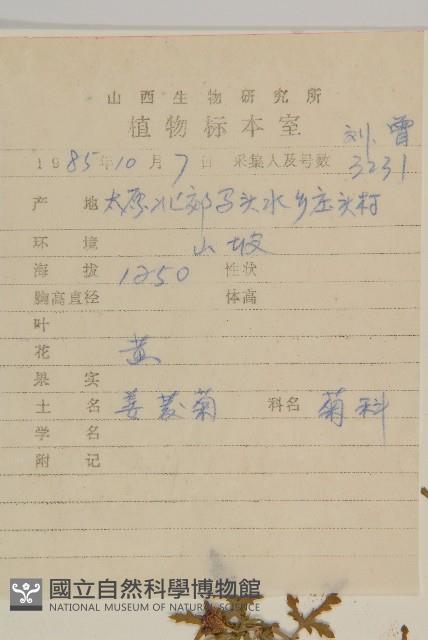 山西生物研究所
植物标本室
刘 曾
1985年10月7日 采集人及号数 3231
产地 太原北郊马头水乡庄头村
环境 山坡
海拔 1250 性状
胸高直径 体高
叶
花 黄
果实
土名 菊 科名 菊科
学名
附记
國立自然科學博物館
NATIONAL MUSEUM OF NATURAL SCIENCE